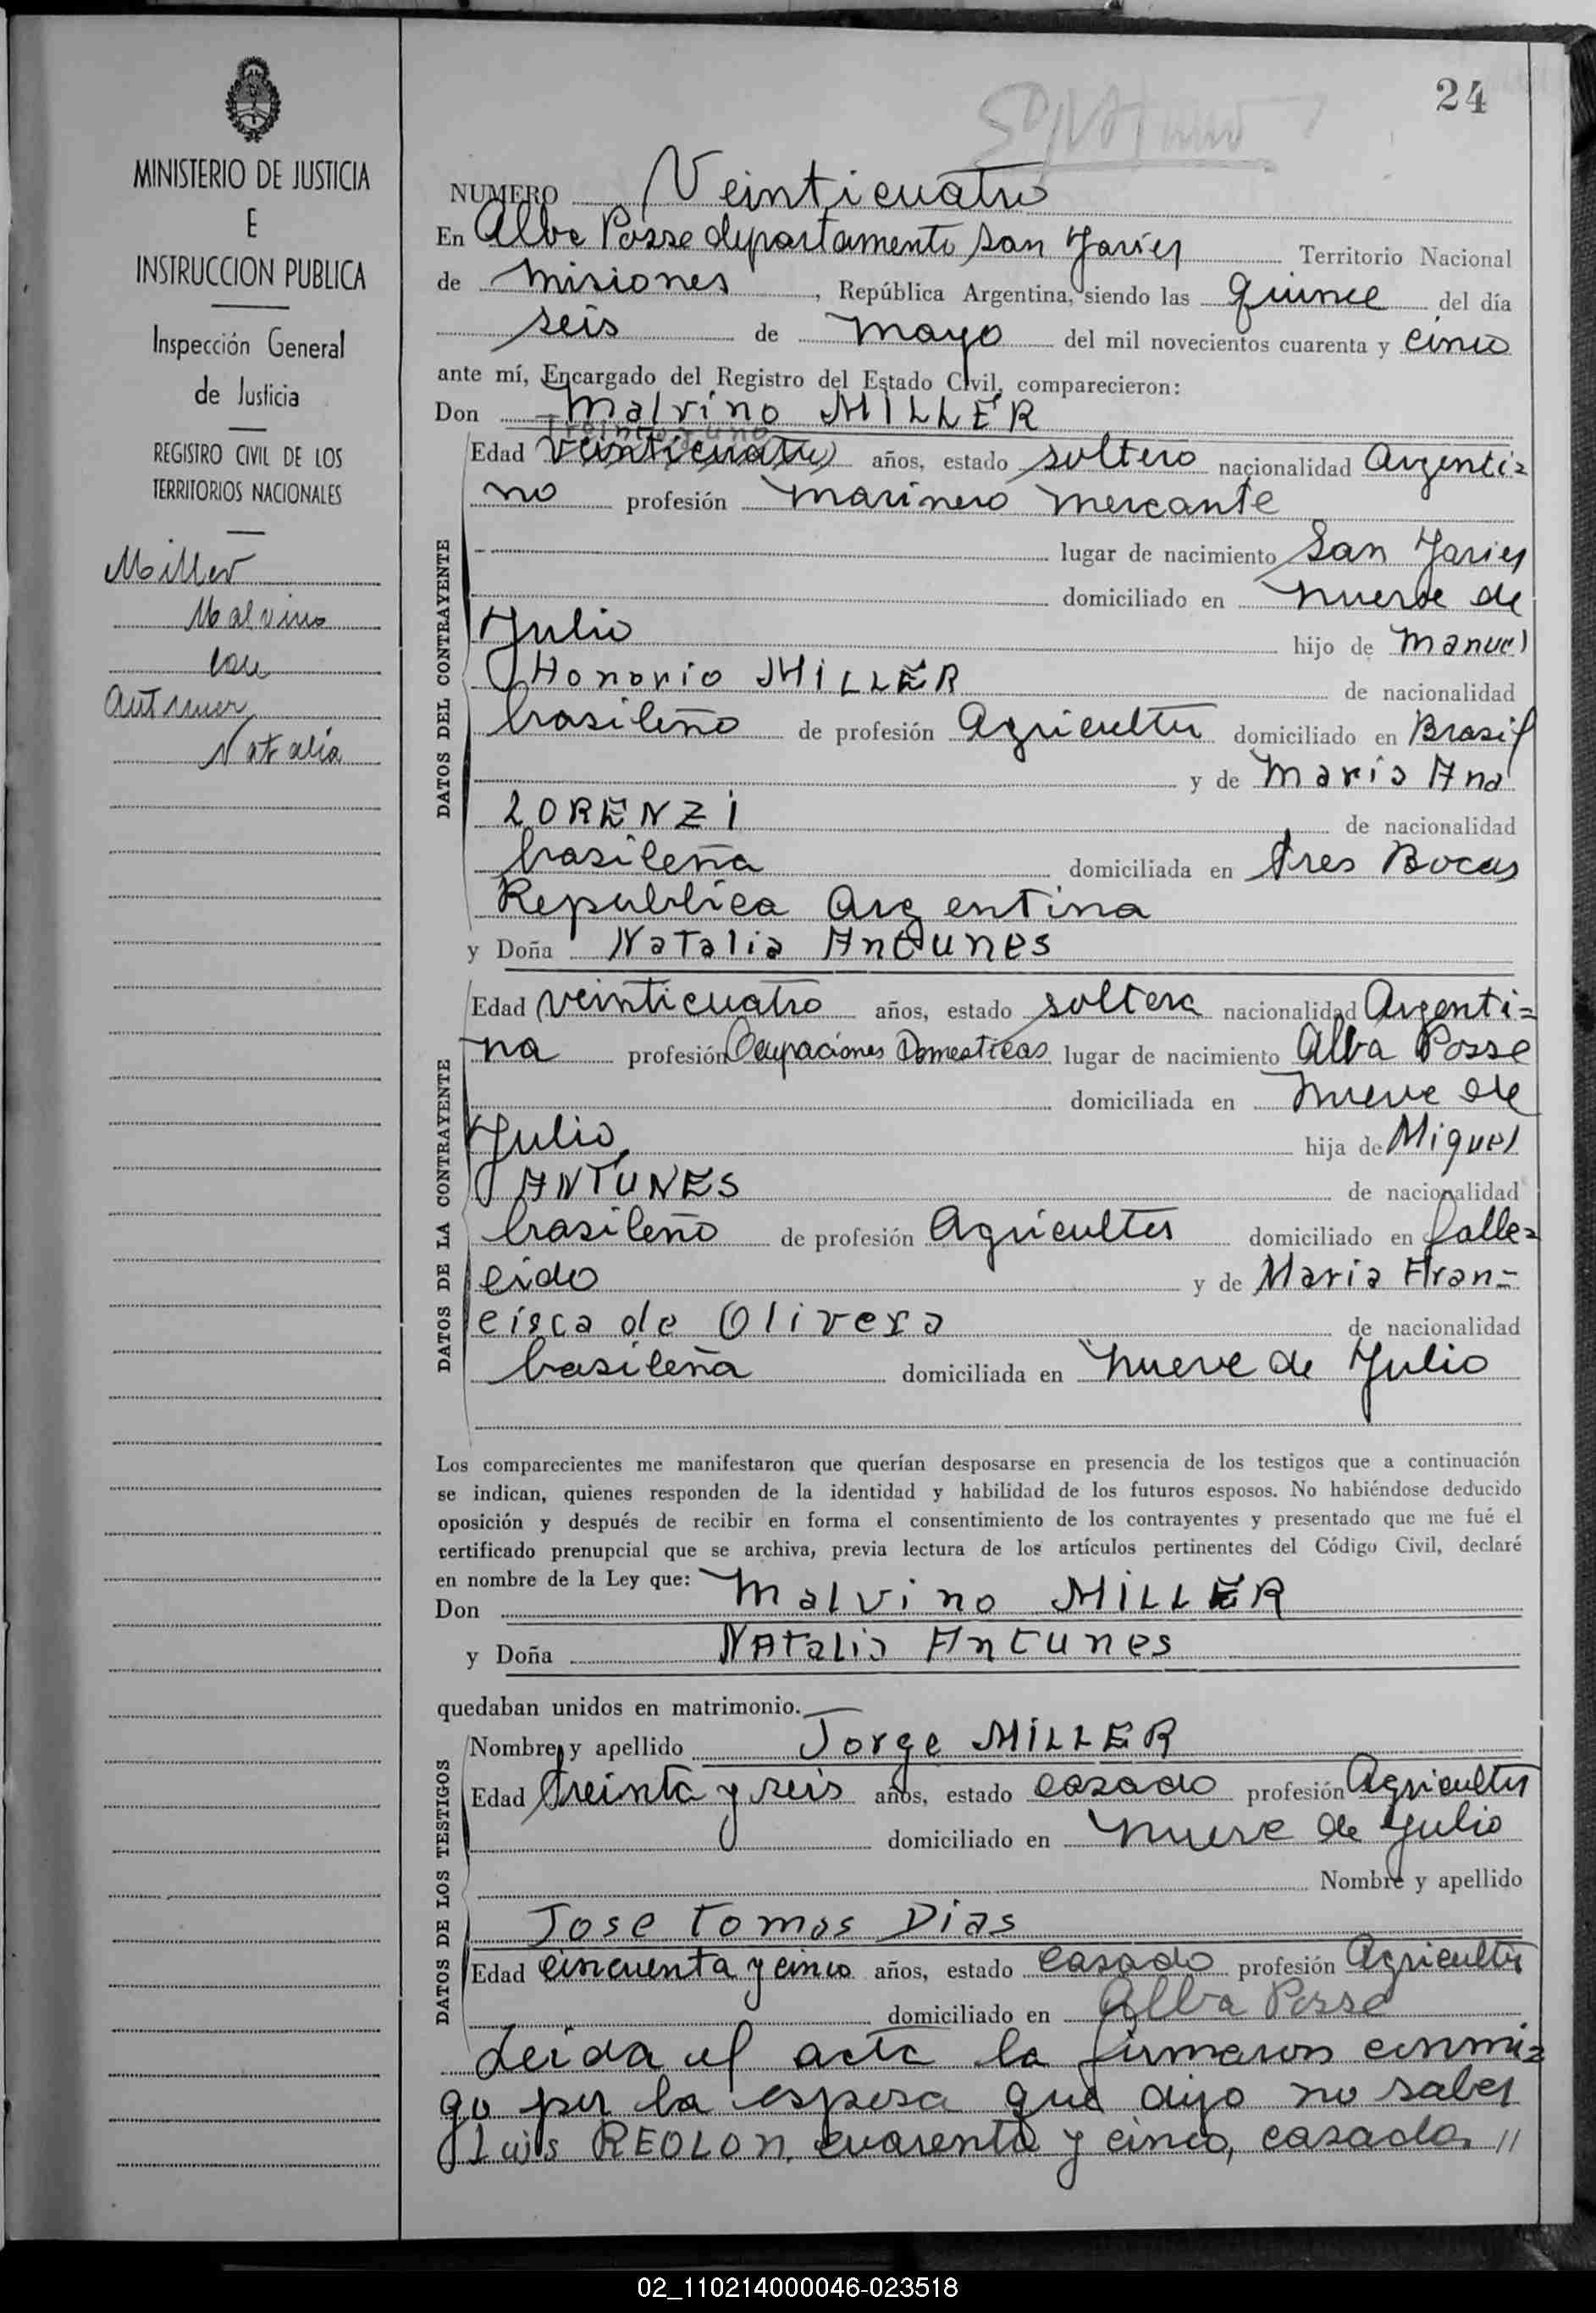 24
MINISTERIO DE JUSTICIA
E
INSTRUCCION PUBLICA
Inspección General
de Justicia
REGISTRO CIVIL DE LOS
TERRITORIOS NACIONALES
Miller
Malvino
con
Antunes
Natalia
NUMERO Veinticuatro
En Alba Posse departamento San Javier Territorio Nacional
de Misiones, República Argentina, siendo las quince del día
seis de mayo del mil novecientos cuarenta y cinco
ante mí, Encargado del Registro del Estado Civil, comparecieron:
Don Malvino MILLER
treinta y uno
Edad veinticuatro años, estado soltero nacionalidad Argenti=
no profesión marinero mercante
lugar de nacimiento San Javier
domiciliado en nueve de
Julio hijo de Manuel
Honorio MILLER de nacionalidad
brasileño de profesión Agricultor domiciliado en Brasil
y de Maria Ana
LORENZI de nacionalidad
brasileña domiciliada en tres Bocas
Republica Argentina
y Doña Natalia Antunes
Edad veinticuatro años, estado soltera nacionalidad Argenti=
na profesión Ocupaciones Domesticas lugar de nacimiento Alba Posse
domiciliada en nueve de
Julio hija de Miguel
ANTUNES de nacionalidad
brasileño de profesión Agricultor domiciliado en falle=
cido y de Maria Fran=
cisca de Olivera de nacionalidad
brasileña domiciliada en nueve de Julio
DATOS DEL CONTRAYENTE
DATOS DE LA CONTRAYENTE
Los comparecientes me manifestaron que querían desposarse en presencia de los testigos que a continuación
se indican, quienes responden de la identidad y habilidad de los futuros esposos. No habiéndose deducido
oposición y después de recibir en forma el consentimiento de los contrayentes y presentado que me fué el
certificado prenupcial que se archiva, previa lectura de los artículos pertinentes del Código Civil, declaré
en nombre de la Ley que:
Don Malvino MILLER
y Doña NAtalia Antunes
quedaban unidos en matrimonio.
Nombre y apellido Jorge MILLER
Edad treinta y seis años, estado casado profesión Agricultor
domiciliado en nueve de Julio
Nombre y apellido
Jose tomas Dias
Edad cincuenta y cinco años, estado casado profesión Agricultor
domiciliado en Alba Posse
DATOS DE LOS TESTIGOS
Leida el acta la firmaron conmi=
go por la esposa que dijo no saber
Luis REOLON, cuarenta y cinco, casado, //
02_110214000046-023518